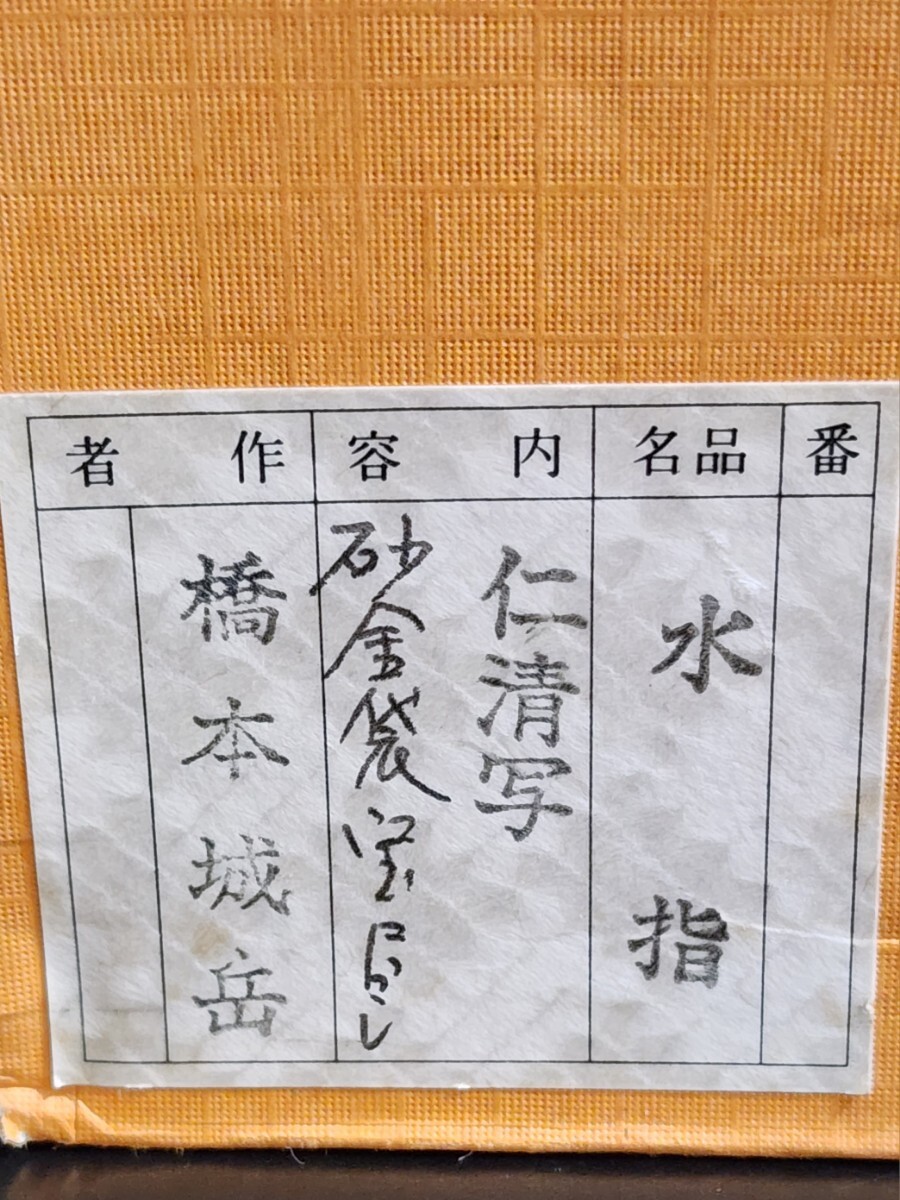 番
品名
水指
内容
仁清写
砂金袋宝尽し
作者
橋本城岳